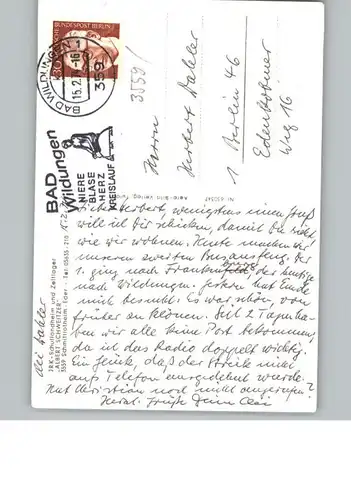 DEUTSCHE BUNDESPOST BERLIN
BAD WILDUNGEN
15.2.74-16
359
3559/
BAD
Wildungen
NIERE
BLASE
HERZ
KREISLAUF
Herrn
Herbert Dahler
1 Berlin 46
Weg 16
Aero-Bild Verlag
Clei Dahler
JRK-Schullandheim und Zeltlager
"ALBERT SCHWEITZER"
3559 Schmittlotheim, Eder - Tel. 05635-219
Lieber Herbert, wenigstens einen Gruß
will ich dir schicken, damit du siehst
wie wir wohnen. Heute machen wir
unseren zweiten Busausflug. Der
1. ging nach Frankenberg der heutige
nach Wildungen. Gestern hat Ernde
mich besucht. Es war schön, von
früher zu klönen. Seit 2 Tagen ha-
ben wir alle keine Post bekommen,
da ist das Radio doppelt wichtig.
Ein Glück, daß der Streik nicht
auf Telefon ausgedehnt wurde.
Hat Christian noch nicht angerufen?
Herzl. Grüße Deine Clei